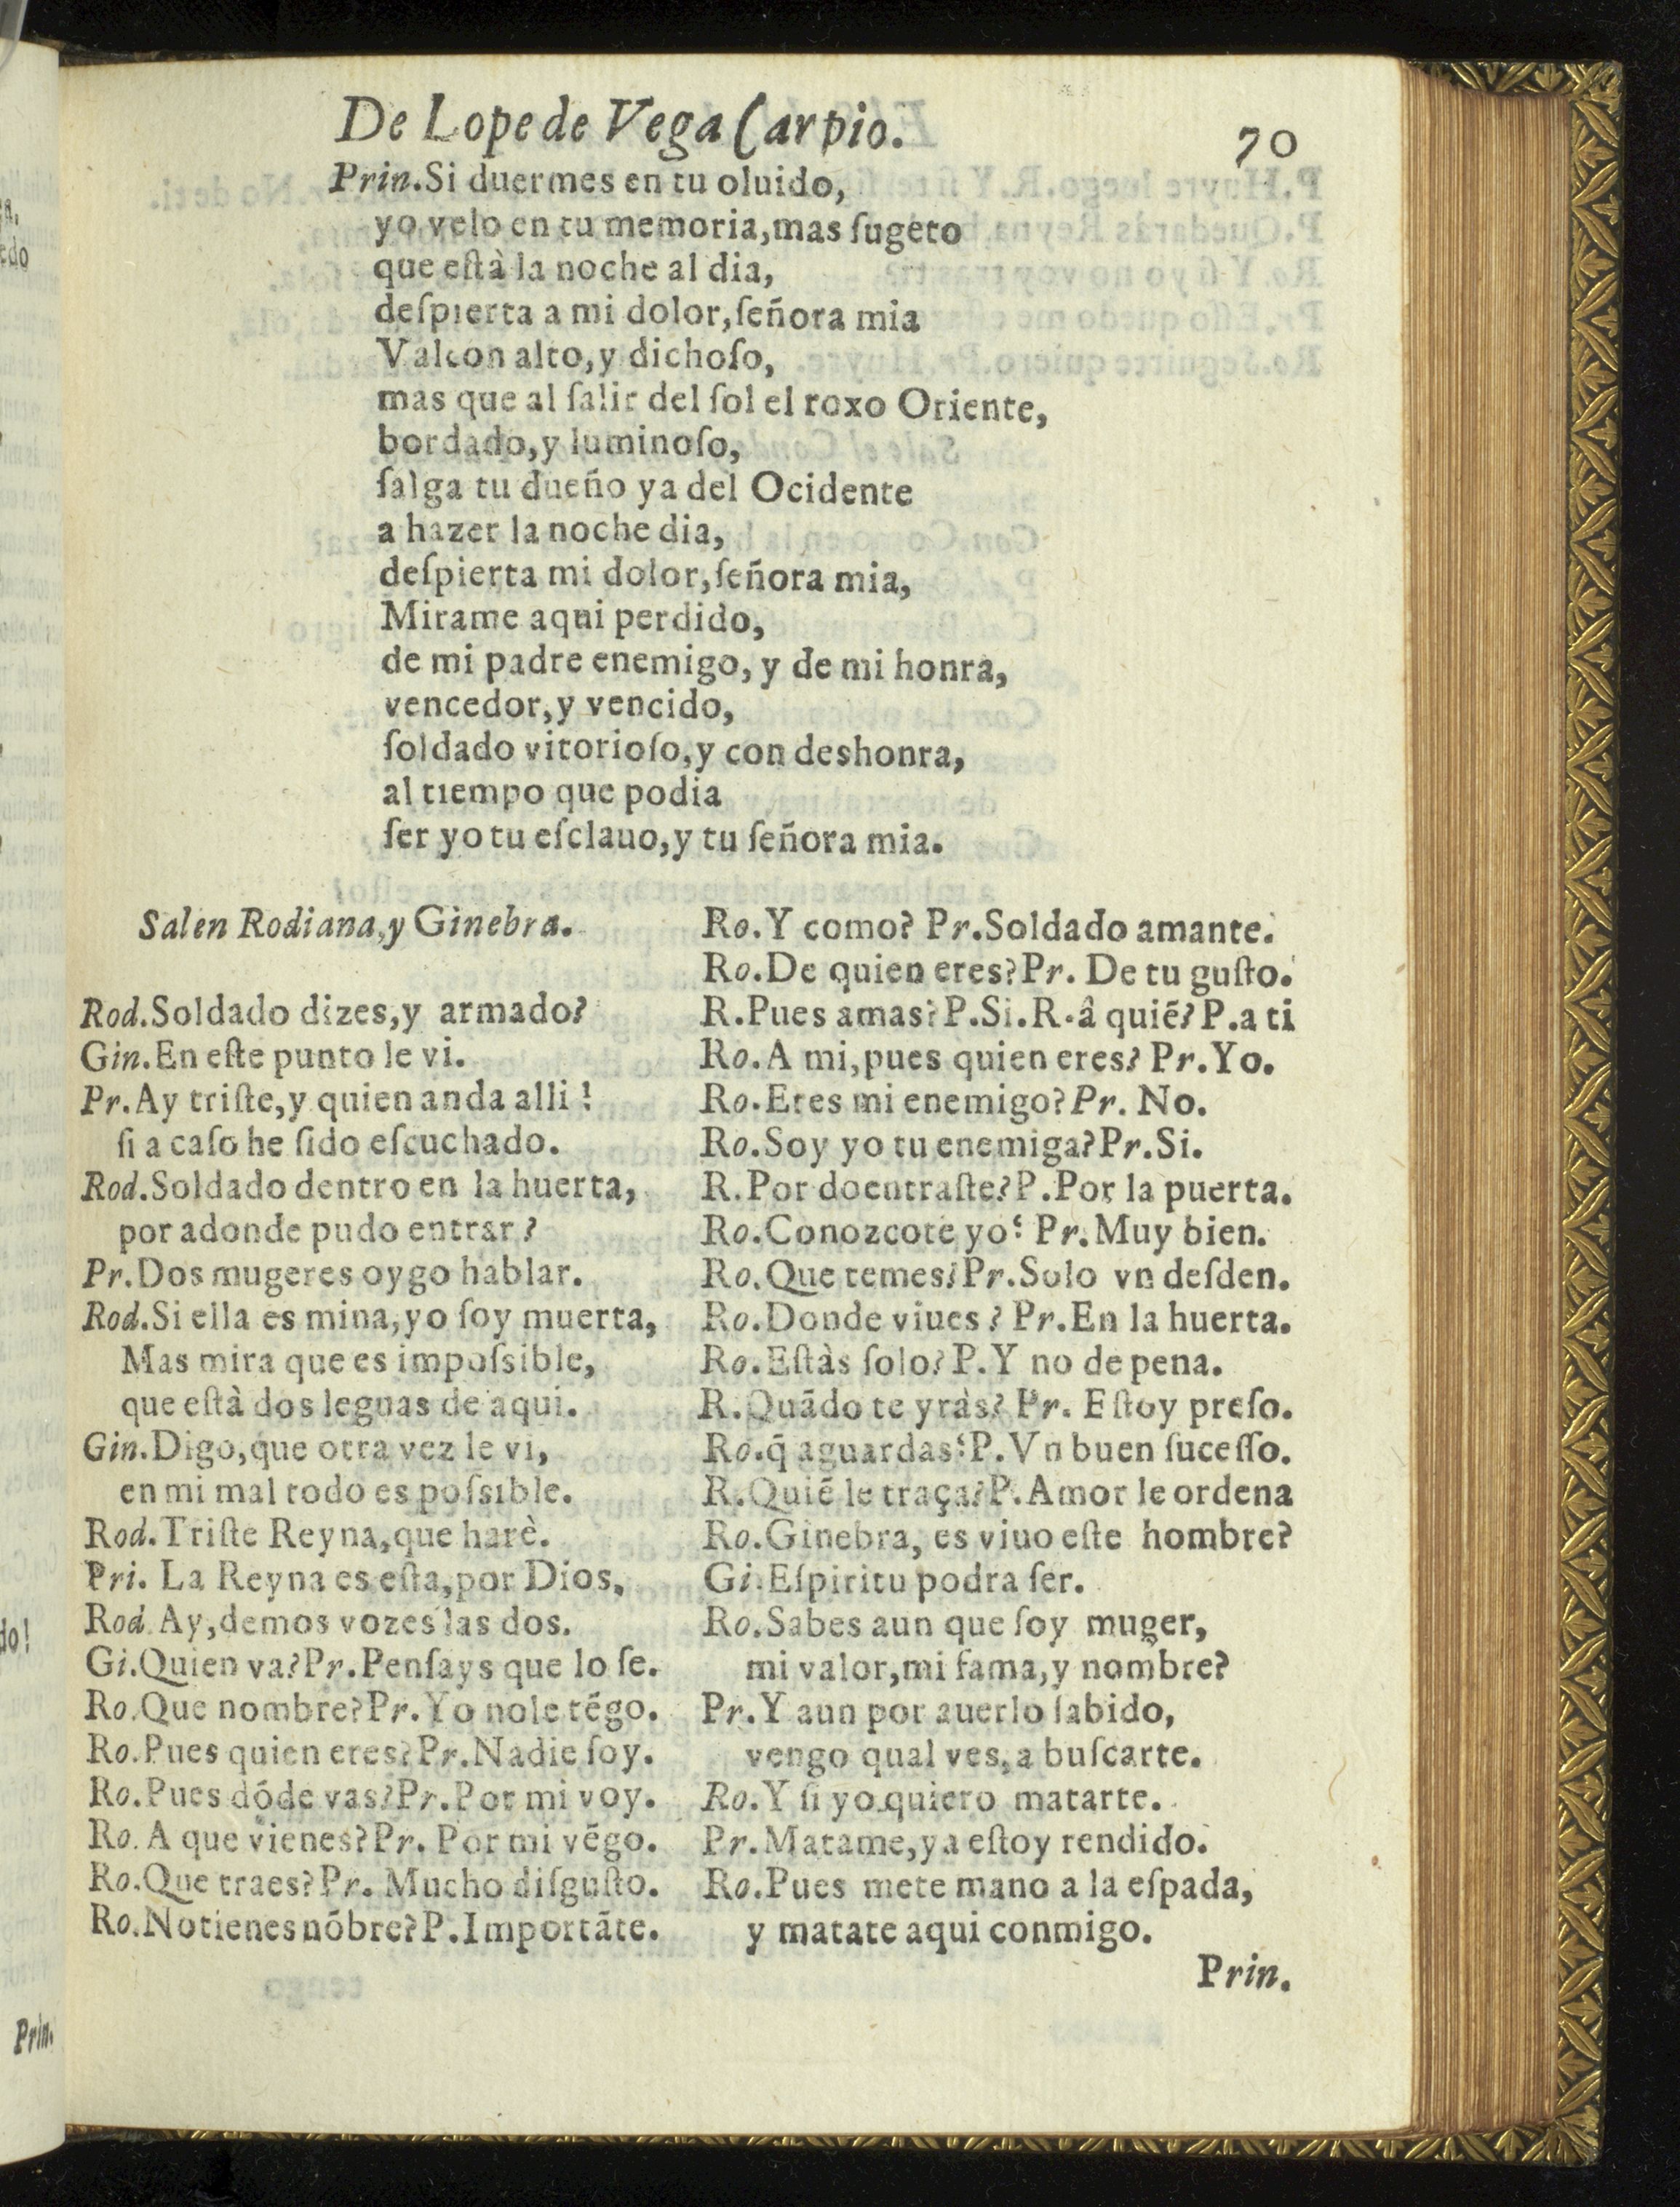 De Lope de Vega Carpio. 70
Prin. Si duermes en tu oluido,
yo velo en tu memoria, mas ſugeto
que eſtà la noche al dia,
deſpierta a mi dolor, ſeñora mia
Valcon alto, y dichoſo,
mas que al ſalir del ſol el roxo Oriente,
bordado, y luminoſo,
ſalga tu dueño ya del Ocidente
a hazer la noche dia,
deſpierta mi dolor, ſeñora mia,
Mirame aqui perdido,
de mi padre enemigo, y de mi honra,
vencedor, y vencido,
ſoldado vitorioſo, y con deshonra,
al tiempo que podia
ſer yo tu eſclauo, y tu ſeñora mia.
Salen Rodiana, y Ginebra.
Rod. Soldado dizes, y armado?
Gin. En eſte punto le vi.
Pr. Ay triſte, y quien anda alli!
ſi a caſo he ſido eſcuchado.
Rod. Soldado dentro en la huerta,
por adonde pudo entrar?
Pr. Dos mugeres oygo hablar.
Rod. Si ella es mina, yo ſoy muerta,
Mas mira que es impoſsible,
que eſtà dos leguas de aqui.
Gin. Digo, que otra vez le vi,
en mi mal todo es poſsible.
Rod. Triſte Reyna, que harè.
Pri. La Reyna es eſta, por Dios,
Rod. Ay, demos vozes las dos.
Gi. Quien va? Pr. Penſays que lo ſe.
Ro. Que nombre? Pr. Yo nole tẽgo.
Ro. Pues quien eres? Pr. Nadie ſoy.
Ro. Pues dõde vas? Pr. Por mi voy.
Ro. A que vienes? Pr. Por mi vẽgo.
Ro. Que traes? Pr. Mucho diſguſto.
Ro. No tienes nõbre? P. Importãte.
Ro. Y como? Pr. Soldado amante.
Ro. De quien eres? Pr. De tu guſto.
R. Pues amas? P. Si. R. â quiẽ? P. a ti
Ro. A mi, pues quien eres? Pr. Yo.
Ro. Eres mi enemigo? Pr. No.
Ro. Soy yo tu enemiga? Pr. Si.
R. Por do entraſte? P. Por la puerta.
Ro. Conozcote yo? Pr. Muy bien.
Ro. Que temes? Pr. Solo vn deſden.
Ro. Donde viues? Pr. En la huerta.
Ro. Eſtàs ſolo? P. Y no de pena.
R. Quãdo te yràs? Pr. Eſtoy preſo.
Ro. q̃ aguardas? P. Vn buen ſuceſſo.
R. Quiẽ le traça? P. Amor le ordena
Ro. Ginebra, es viuo eſte hombre?
Gi. Eſpiritu podra ſer.
Ro. Sabes aun que ſoy muger,
mi valor, mi fama, y nombre?
Pr. Y aun por auerlo ſabido,
vengo qual ves, a buſcarte.
Ro. Y ſi yo quiero matarte.
Pr. Matame, ya eſtoy rendido.
Ro. Pues mete mano a la eſpada,
y matate aqui conmigo.
Prin.